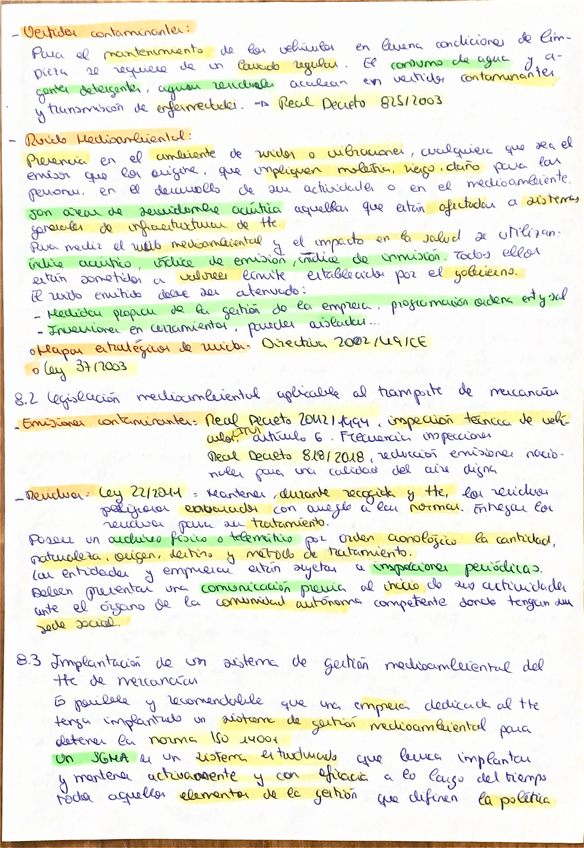 - Vertidos contaminantes:
Para el mantenimiento de los vehículos en buena condiciones de lim-
pieza se requiere de un lavado regular. El consumo de agua y a-
gente detergentes, aguas residuales acaban en vertidos contaminantes
y transmisión de enfermedades. -> Real Decreto 825/2003
- Ruido Medioambiental:
Presencia en el ambiente de ruidos o vibraciones, cualquiera que sea el
emisor que los origine, que impliquen molestia, riesgo, daño para las
personas, en el desarrollo de sus actividades o en el medioambiente.
Son áreas de servidumbre acústica aquellas que están afectadas a sistemas
generales de infraestructuras de tte
Para medir el ruido medioambiental y el impacto en la salud se utilizan:
índice acústico, índice de emisión, índice de inmisión. Todos ellos
están sometidos a valores límite establecidos por el gobierno.
El ruido emitido debe ser atenuado:
- Medidas propias de la gestión de la empresa, programación ordena ent y sal
- Inversiones en cerramientos, paredes aisladas...
o Mapas estratégicos de ruido. Directiva 2002/49/CE
o Ley 37/2003
8.2 Legislación medioambiental aplicable al transporte de mercancías
- Emisiones contaminantes: Real Decreto 2042/1994, inspección técnica de vehí-
culos, ITV artículo 6. Frecuencia inspecciones
Real Decreto 818/2018, reducción emisiones nacio-
nales para una calidad del aire digna
- Residuos: Ley 22/2011 = Mantener, durante recogida y tte, los residuos
peligrosos envasados con arreglo a las normas. Entregar los
residuos para su tratamiento.
Poseen un archivo físico o telemático por orden cronológico la cantidad,
naturaleza, origen, destino y método de tratamiento.
Las entidades y empresas están sujetas a inspecciones periódicas.
Deben presentar una comunicación previa al inicio de sus actividades
ante el órgano de la comunidad autónoma competente donde tengan su
sede social.
8.3 Implantación de un sistema de gestión medioambiental del
tte de mercancías
Es posible y recomendable que una empresa dedicada al tte
tenga implantado un sistema de gestión medioambiental para
obtener la norma ISO 14001
Un SGMA es un sistema estructurado que busca implantar
y mantener activamente y con eficacia a lo largo del tiempo
todos aquellos elementos de la gestión que definen la política